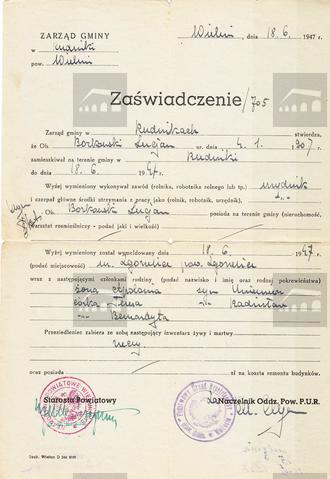 ZARZĄD GMINY
w Rudniki
pow. Wieluń
Wieluń, dnia 18.6 1947 r.
Zaświadczenie /705
Zarząd gminy w Rudnikach stwierdza,
że Ob. Borkowski Lucjan ur. dnia 4. 1. 1907 r.
zamieszkiwał na terenie gminy Rudniki
do dnia 18. 6 1947 r.
Wyżej wymieniony wykonywał zawód (rolnika, robotnika rolnego lub tp.) urzędnik
i czerpał główne środki utrzymania z pracy (jako rolnik, robotnik, urzędnik),
Ob. Borkowski Lucjan posiada na terenie gminy (nieruchomość,
warsztat rzemieślniczy - podać jaki i wielkość)
Wyżej wymieniony został wymeldowany dnia 18. 6 1947 r.
(podać miejscowość) m. Zgorzelice pow. Zgorzelice
wraz z następującymi członkami rodziny (podać nazwisko i imię oraz rodzaj pokrewieństwa)
żona syn
córka Teresa -"- Radzisław
-"- Bernardyta
Przesiedleniec zabiera ze sobą następujący inwentarz żywy i martwy
rzeczy
oraz posiada zł na koszta remontu budynków.
Starosta Powiatowy
Naczelnik Oddz. Pow. P.U.R.
Druk. Wieluń D